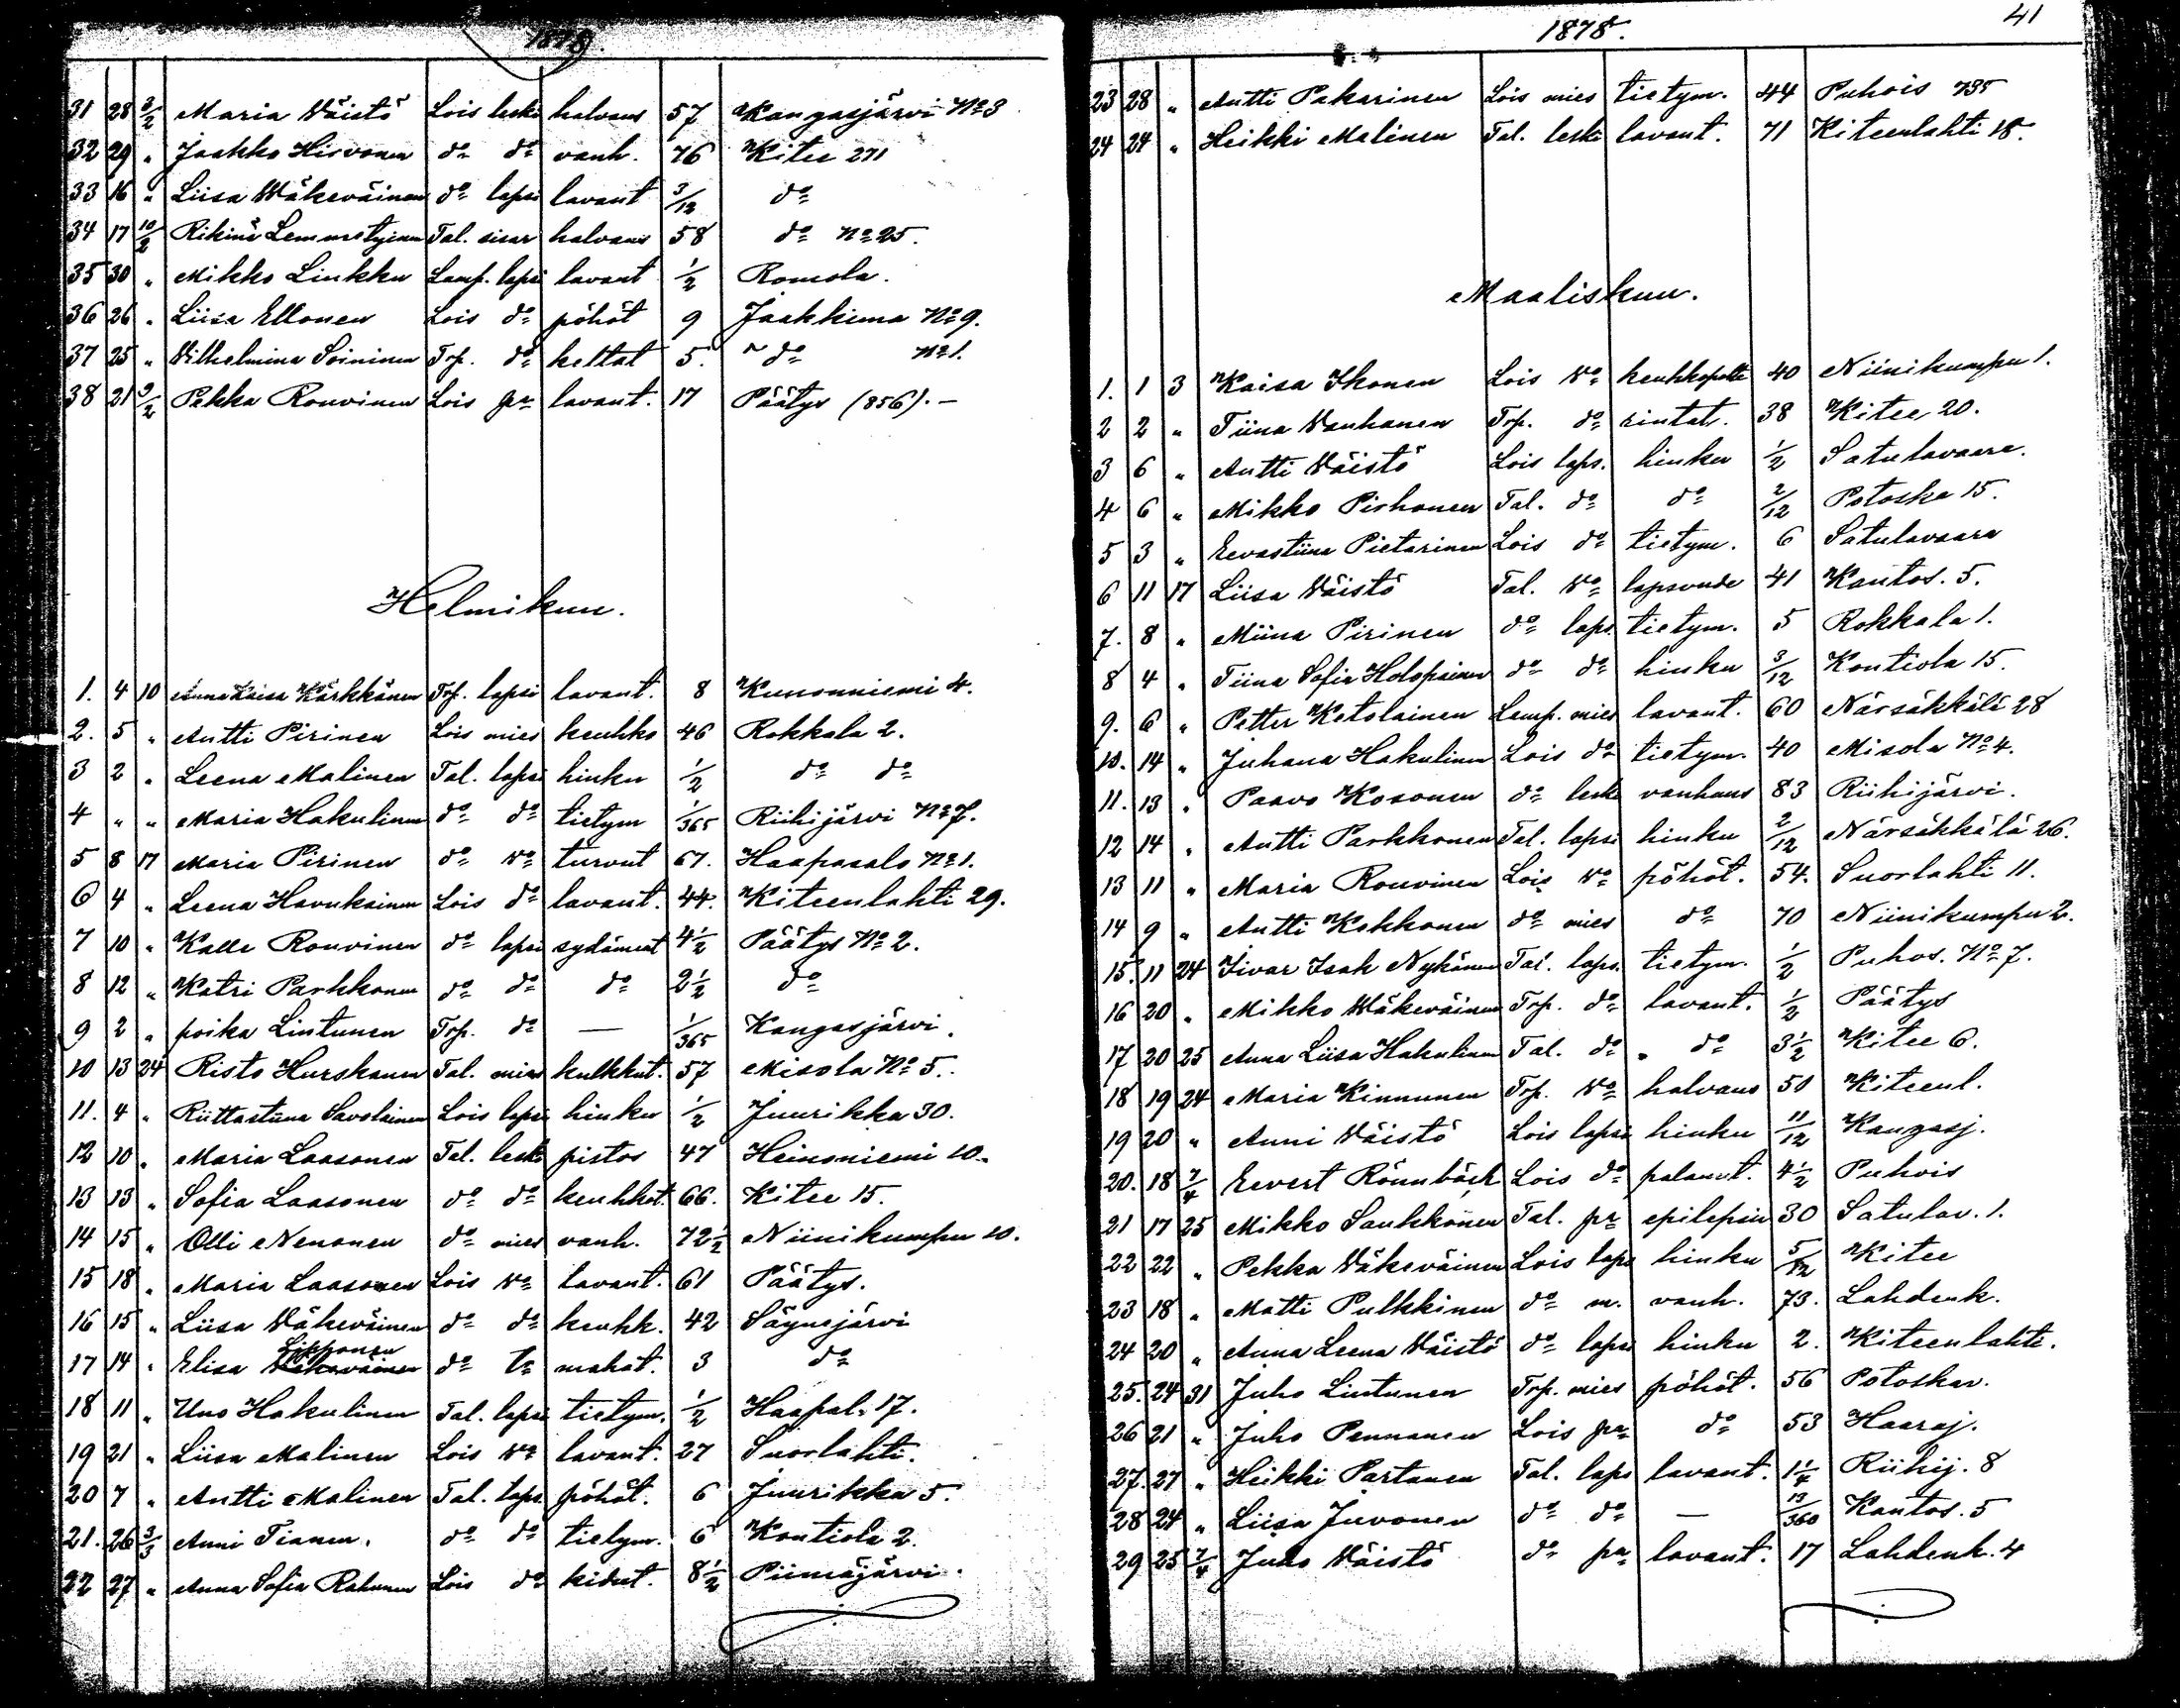 1878.
31 28 3/2 Maria Väistö Lois leski halvaus 57 Kangasjärvi No 3
32 29 " Jaakko Hirvonen do do vanh. 76 Kitee 271
33 16 " Liisa Wäkeväinen do lapsi lavant 3/12 do
34 17 10/2 Lemmetyinen Tal. sisar halvaus 58 do No 25.
35 30 " Mikko Linkku Lamp. lapsi lavant 1/2 Romola.
36 26 " Liisa Ellonen Lois do pöhöt 9 Jaakkima No 9.
37 25 " Vilhelmina Soininen Trp. do 5. do No 1.
38 21 9/2 Pekka Rouvinen Lois pr lavant. 17 Päätys (856). —
Helmikuu.
1. 4 10 Anna Kaisa Kärkkänen Trp. lapsi lavant. 8 Kunonniemi 4.
2. 5 " Antti Pirinen Lois mies keuhko 46 Rokkala 2.
3 2 " Leena Malinen Tal. lapsi hinku 1/2 do do
4 " " Maria Hakulinen do do tietym 1/365 Riihijärvi No 7.
5 8 17 Maria Pirinen do vo turvut 67. Haapasalo No 1.
6 4 " Leena Havukainen Lois do lavant. 44. Kiteenlahti 29.
7 10 " Kalle Rouvinen do lapsi sydämest 4 1/2 Päätys No 2.
8 12 " Katri Parkkonen do do do 2 1/2 do
9 2 " poika Lintunen Trp. do — 1/365 Kangasjärvi.
10 13 24 Risto Hurskanen Tal. mies kulkkut. 57 Misola No 5.
11. 4 " Riittastiina Savolainen Lois lapsi hinku 1/2 Juurikka 30.
12 10 " Maria Laasonen Tal. leski pistos 47 Heinoniemi 10.
13 13 " Sofia Laasonen do do keuhkot. 66. Kitee 15.
14 15 " Olli Nenonen do mies vanh. 72 1/2 Niinikumpu 10.
15 18 " Maria Laasonen Lois vo lavant. 61 Päätys.
16 15 " Liisa Väkeväinen do do keuhk. 42 Säynejärvi
Sipponen
17 14 " Elisa Väkeväinen do tr mahat. 3 do
18 11 " Uno Hakulinen Tal. lapsi tietym. 1/2 Haapal. 17.
19 21 " Liisa Malinen Lois vo lavant. 27 Suorlahti.
20 7 " Antti Malinen Tal. laps. pöhöt. 6 Juurikka 5.
21. 26 3/3 Anni Tianen. do do tietym. 6 Kontiola 2.
22 27 " Anna Sofia Rahunen Lois do kidut. 8 1/2 Piimäjärvi.
1878. 41
23 28 " Antti Pakarinen Lois mies tietym. 44 Puhois 735
24 24 " Heikki Malinen Tal. leski lavant. 71 Kiteenlahti 18.
Maaliskuu.
1. 1 3 Kaisa Ikonen Lois vo keuhkopoltt 40 Niinikumpu 1.
2 2 " Tiina Vanhanen Trp. do rintat. 38 Kitee 20.
3 6 " Antti Väistö Lois laps. hinku 1/2 Satulavaara.
4 6 " Mikko Pirhonen Tal. do do 2/12 Potoska 15.
5 3 " Eevastiina Pietarinen Lois do tietym. 6 Satulavaara
6 11 17 Liisa Väistö Tal. vo lapsvude 41 Kantos. 5.
7. 8 " Miina Pirinen do laps. tietym. 5 Rokkala 1.
8 4 " Tiina Sofia Holopainen do do hinku 3/12 Kontiola 15.
9. 6 " Petter Ketolainen Lamp. mies lavant. 60 Närsäkkälä 28
10. 14 " Juhana Hakulinen Lois do tietym. 40 Misola No 4.
11. 13 " Paavo Kosonen do leski vanhuus 83 Riihijärvi.
12 14 " Antti Parkkonen Tal. lapsi hinku 2/12 Närsäkkälä 26.
13 11 " Maria Rouvinen Lois vo pöhöt. 54. Suorlahti 11.
14 9 " Antti Kokkonen do mies do 70 Niinikumpu 2.
15. 11 24 Iivar Isak Nykänen Tal. laps. tietym. 1/2 Puhos. No 7.
16 20 " Mikko Wäkeväinen Trp. do lavant. 1/2 Päätys
17 20 25 Anna Liisa Hakulinen Tal. do " do 3 1/2 Kitee 6.
18 19 24 Maria Kinnunen Trp. vo halvaus 50 Kiteenl.
19 20 " Anni Väistö Lois lapsi hinku 11/12 Kangasj.
20. 18 7/4 Eevert Rönnbäck Lois do palanut. 4 1/2 Puhois
21 17 25 Mikko Saukkonen Tal. pr epilepsia 30 Satulav. 1.
22 22 " Pekka Väkeväinen Lois laps hinku 5/12 Kitee
23 18 " Matti Pulkkinen do m. vanh. 73. Lahdenk.
24 20 " Anna Leena Väistö do lapsi hinku 2. Kiteenlahti.
25. 24 31 Juho Lintunen Trp. mies pöhöt. 56 Potoskav.
26 21 " Juho Pennanen Lois pr do 53 Haaraj.
27. 27 " Heikki Partanen Tal. laps lavant. 1 1/4 Riihij. 8
28 24 " Liisa Juvonen do do — 13/360 Kantos. 5
29 25 7/4 Juho Väistö do pr lavant. 17 Lahdenk. 4